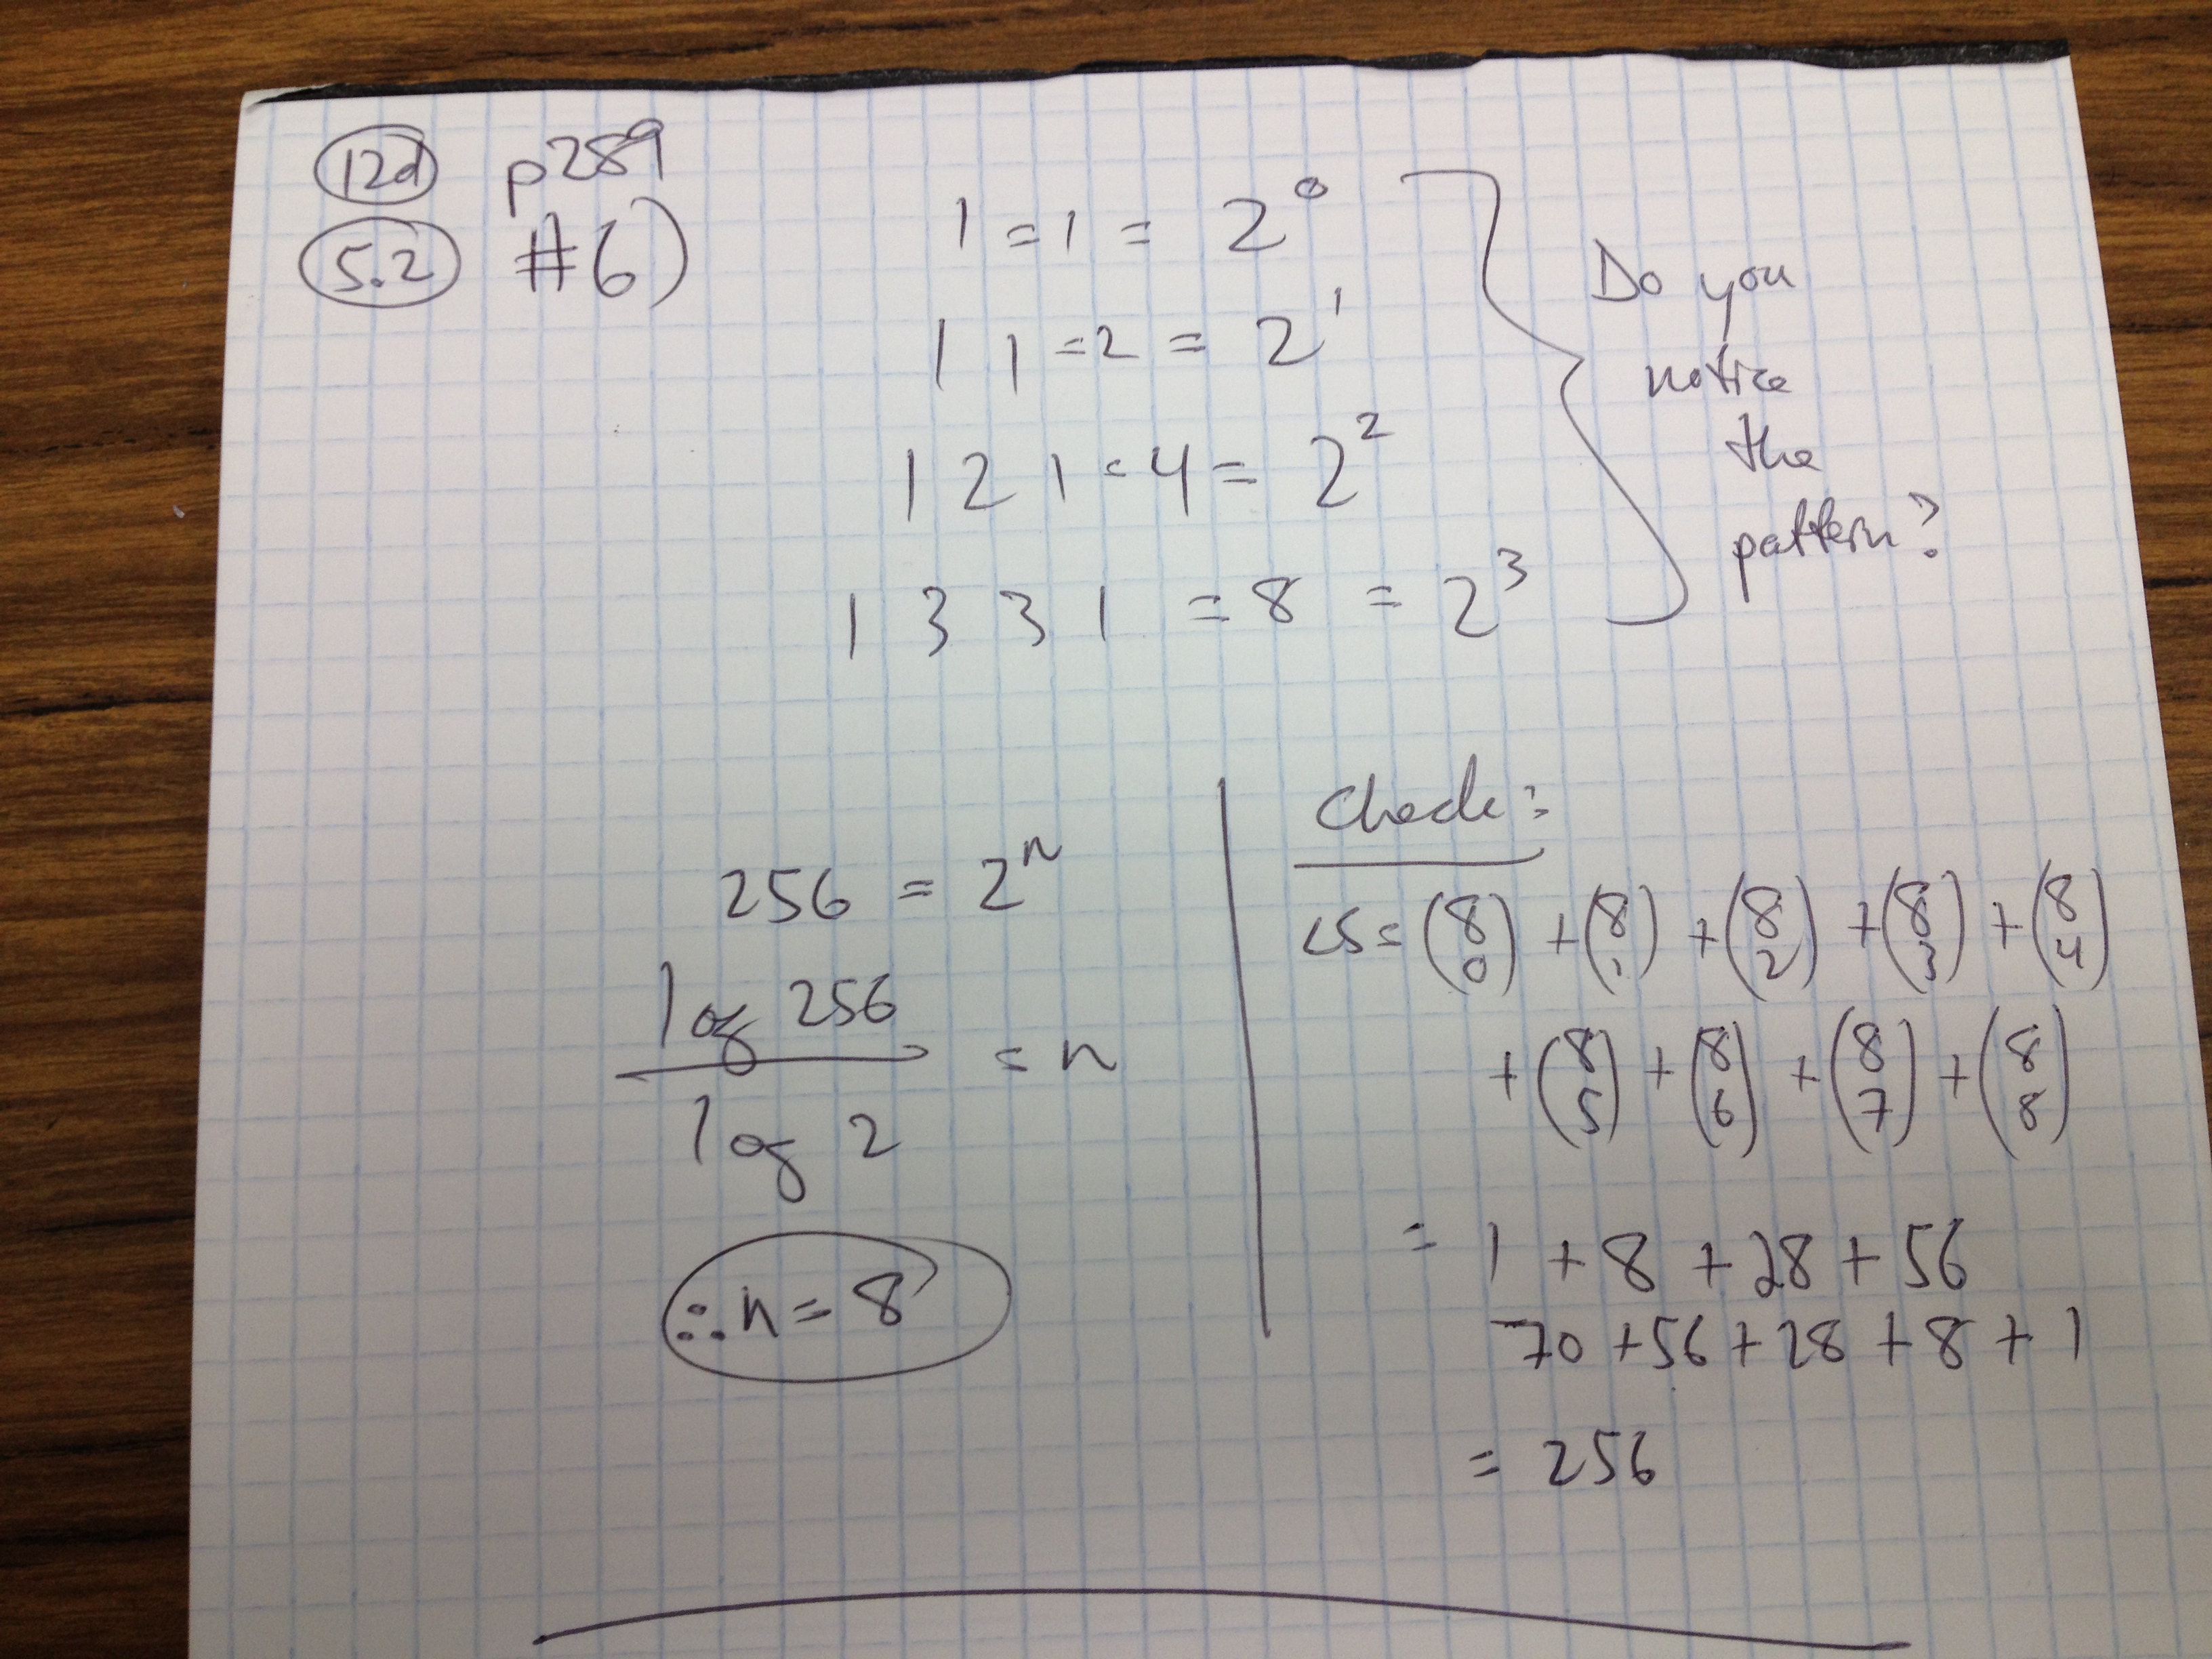 12d p289
5.2 #6)
1 = 1 = 2⁰
1 1 = 2 = 2¹
1 2 1 = 4 = 2²
1 3 3 1 = 8 = 2³
Do you
notice
the
pattern?
256 = 2ⁿ
log 256
/ log 2 = n
∴ n = 8
Check:
LS = (8 0) + (8 1) + (8 2) + (8 3) + (8 4)
+ (8 5) + (8 6) + (8 7) + (8 8)
= 1 + 8 + 28 + 56
70 + 56 + 28 + 8 + 1
= 256